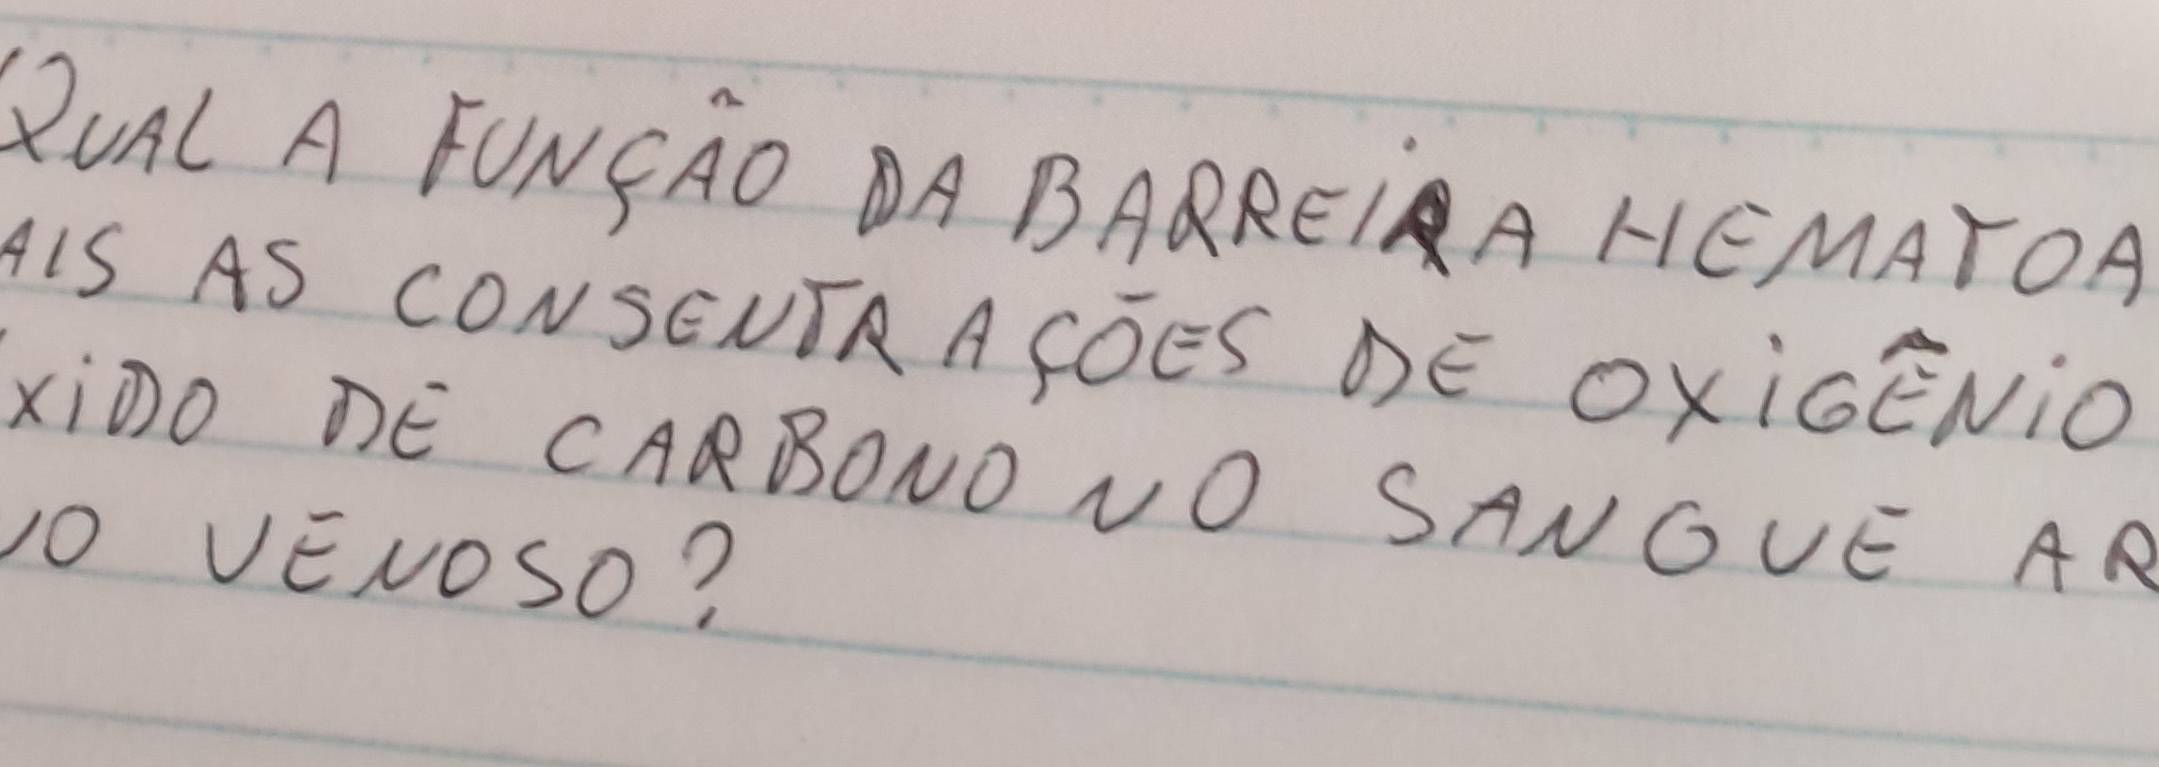 QUAL A FUNÇÃO DA BARREIRA HEMATOA
AIS AS CONSENTRAÇÕES DE OXIGÊNIO
XIDO DE CARBONO NO SANGUE AR
NO VENOSO?